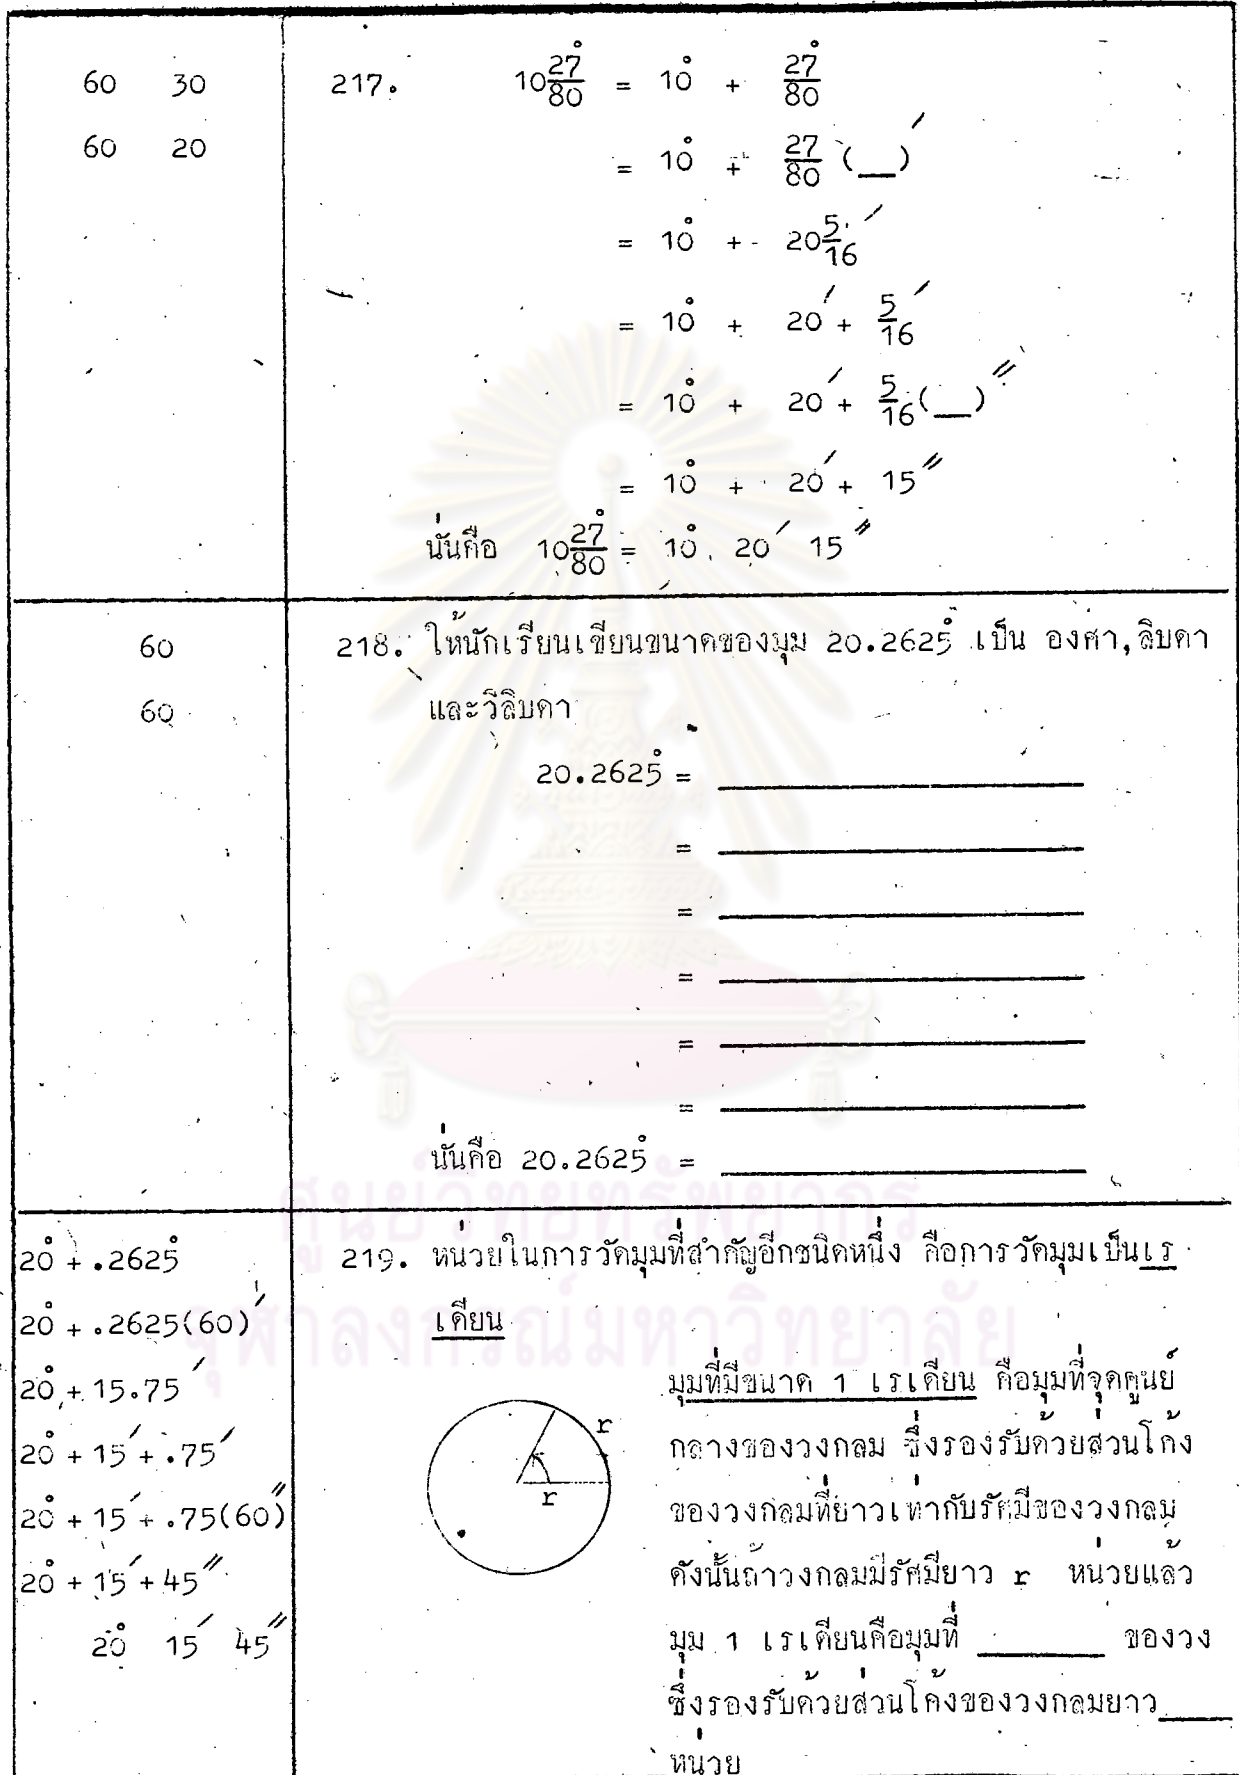 60 30
60 20
217. 10 27/80° = 10° + 27/80°
= 10° + 27/80 (__)′
= 10° + 20 5/16′
= 10° + 20′ + 5/16′
= 10° + 20′ + 5/16(__)″
= 10° + 20′ + 15″
นั่นคือ 10 27/80° = 10° 20′ 15″
60
60
218. ให้นักเรียนเขียนขนาดของมุม 20.2625° เป็น องศา,ลิบดา
และวีลิบดา
20.2625° = ____
= ____
= ____
= ____
= ____
= ____
นั่นคือ 20.2625° = ____
20° + .2625°
20° + .2625(60)′
20° + 15.75′
20° + 15′ + .75′
20° + 15′ + .75(60)″
20° + 15′ + 45″
20° 15′ 45″
219. หน่วยในการวัดมุมที่สำคัญอีกชนิดหนึ่ง คือการวัดมุมเป็นเร
เดียน
มุมที่มีขนาด 1 เรเดียน คือมุมที่จุดศูนย์
กลางของวงกลม ซึ่งรองรับด้วยส่วนโค้ง
ของวงกลมที่ยาวเท่ากับรัศมีของวงกลม
ดังนั้นถ้าวงกลมมีรัศมียาว r หน่วยแล้ว
มุม 1 เรเดียนคือมุมที่ ____ ของวง
ซึ่งรองรับด้วยส่วนโค้งของวงกลมยาว ____
หน่วย
r
r
ศูนย์วิทยทรัพยากร
จุฬาลงกรณ์มหาวิทยาลัย